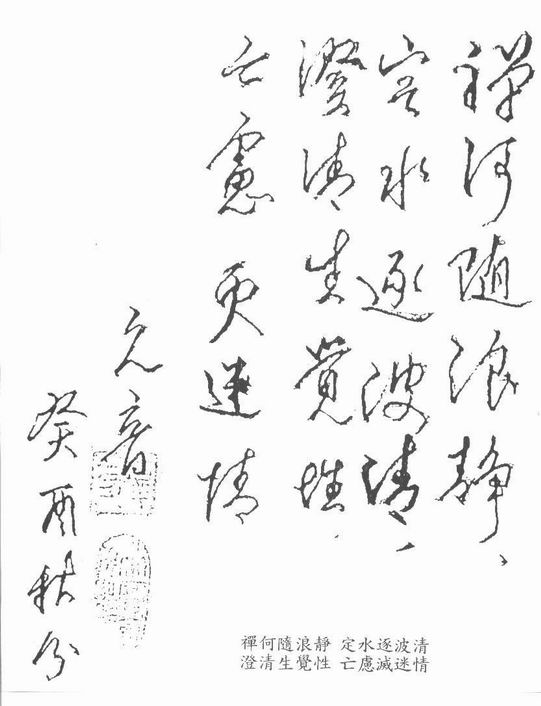 禪河随浪静、
定水逐波清、
澄清生覺性.
亡慮灭迷情
元音
癸酉秋分
禪何隨浪靜 定水逐波清
澄清生覺性 亡慮滅迷情